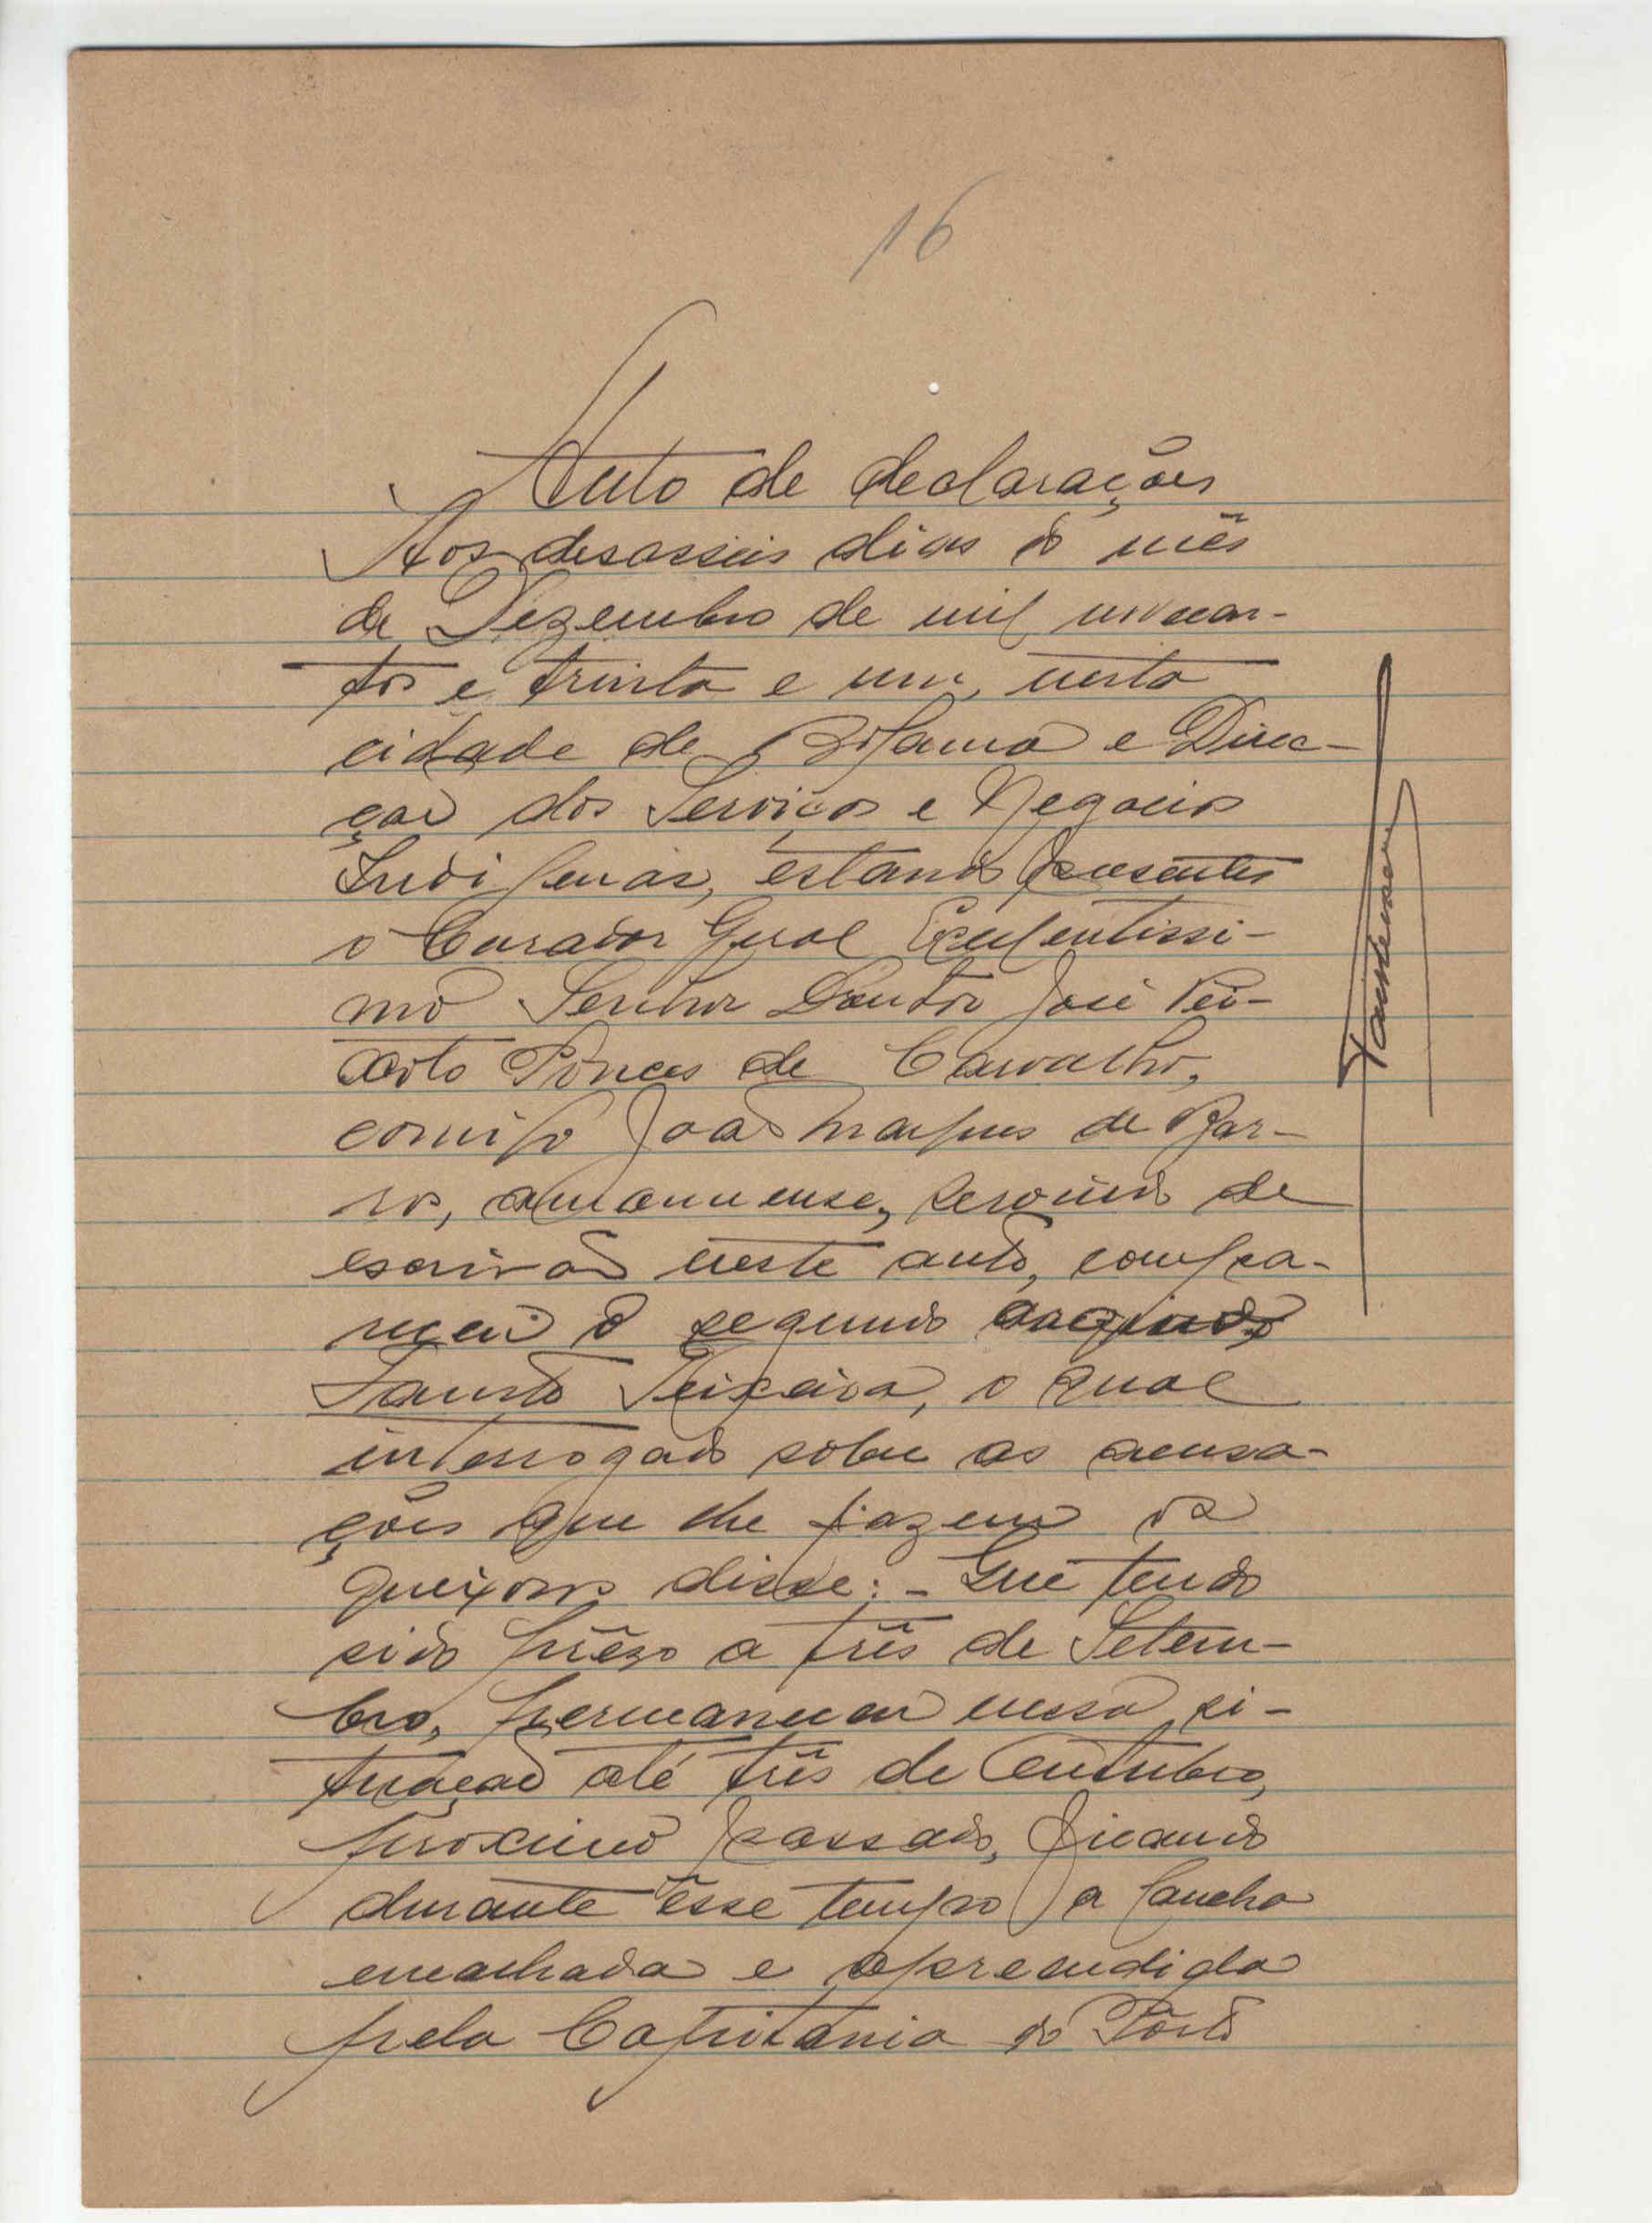 16
Auto de declarações
Aos desasseis dias do mês
de Dezembro de mil novecen-
tos e trinta e um, nesta
cidade de Bolama e Direc-
ção dos Serviços e Negocios
Indigenas, estando presentes
o Curador Geral Excelentissi-
mo Senhor Doutor José Pei-
xoto Ponces de Carvalho,
comigo João Marques de Bar-
ros, amanuense, servindo de
escrivão neste auto, compa-
receu o segundo arguido
Fausto Teixeira, o qual
interrogado sobre as acusa-
ções que lhe fazem os
queixosos disse: - Que tendo
sido prêso a três de Setem-
bro, permaneceu nessa si-
tuação até três de Outubro,
proximo passado, ficando
durante êsse tempo a lancha
encalhada e apreendida
pela Capitania do Pôrto